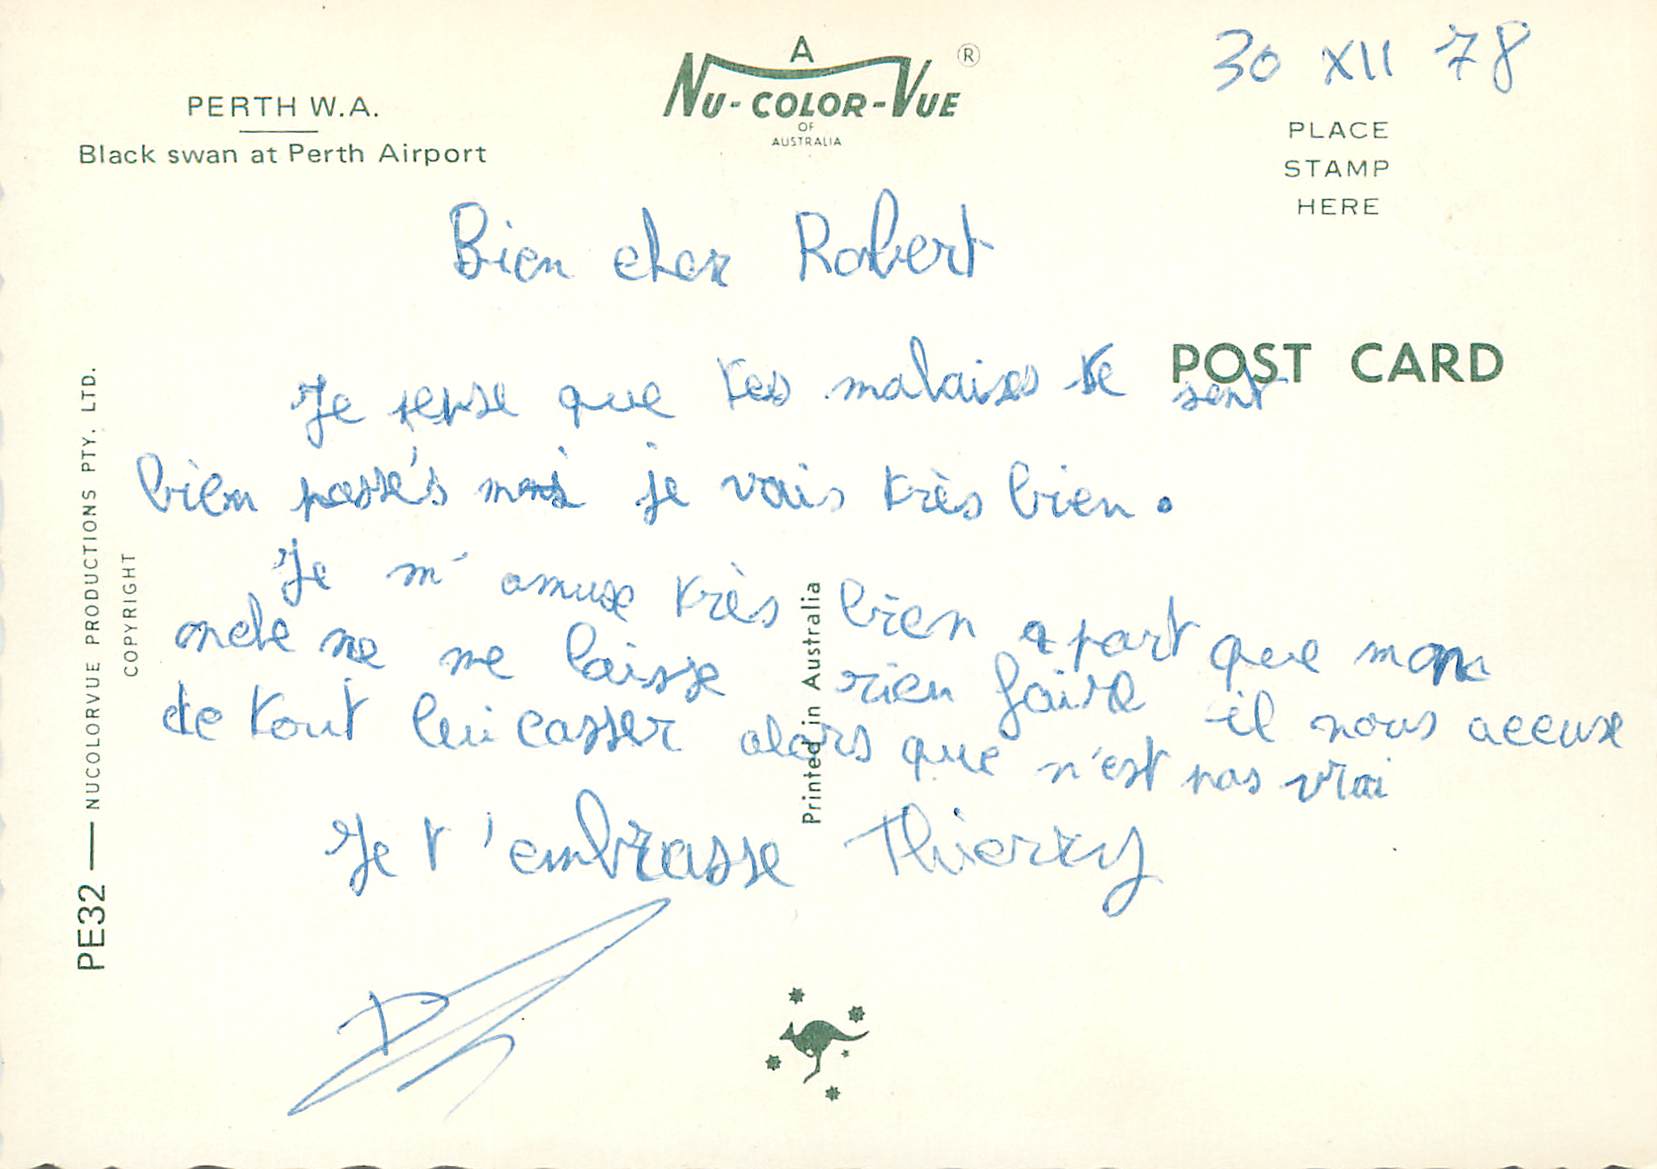 30 XII 78
A
NU-COLOR-VUE ®
OF
AUSTRALIA
PERTH W.A.
Black swan at Perth Airport
PLACE
STAMP
HERE
POST CARD
Bien cher Robert
Je pense que tes malaises se sont
bien passés mais je vais très bien.
Je m'amuse très bien apart que mon
oncle ne me laisse rien faire il nous accuse
de tout lui casser alors que n'est pas vrai
Je t'embrasse Thierry
PE32 — NUCOLORVUE PRODUCTIONS PTY. LTD.
COPYRIGHT
Printed in Australia